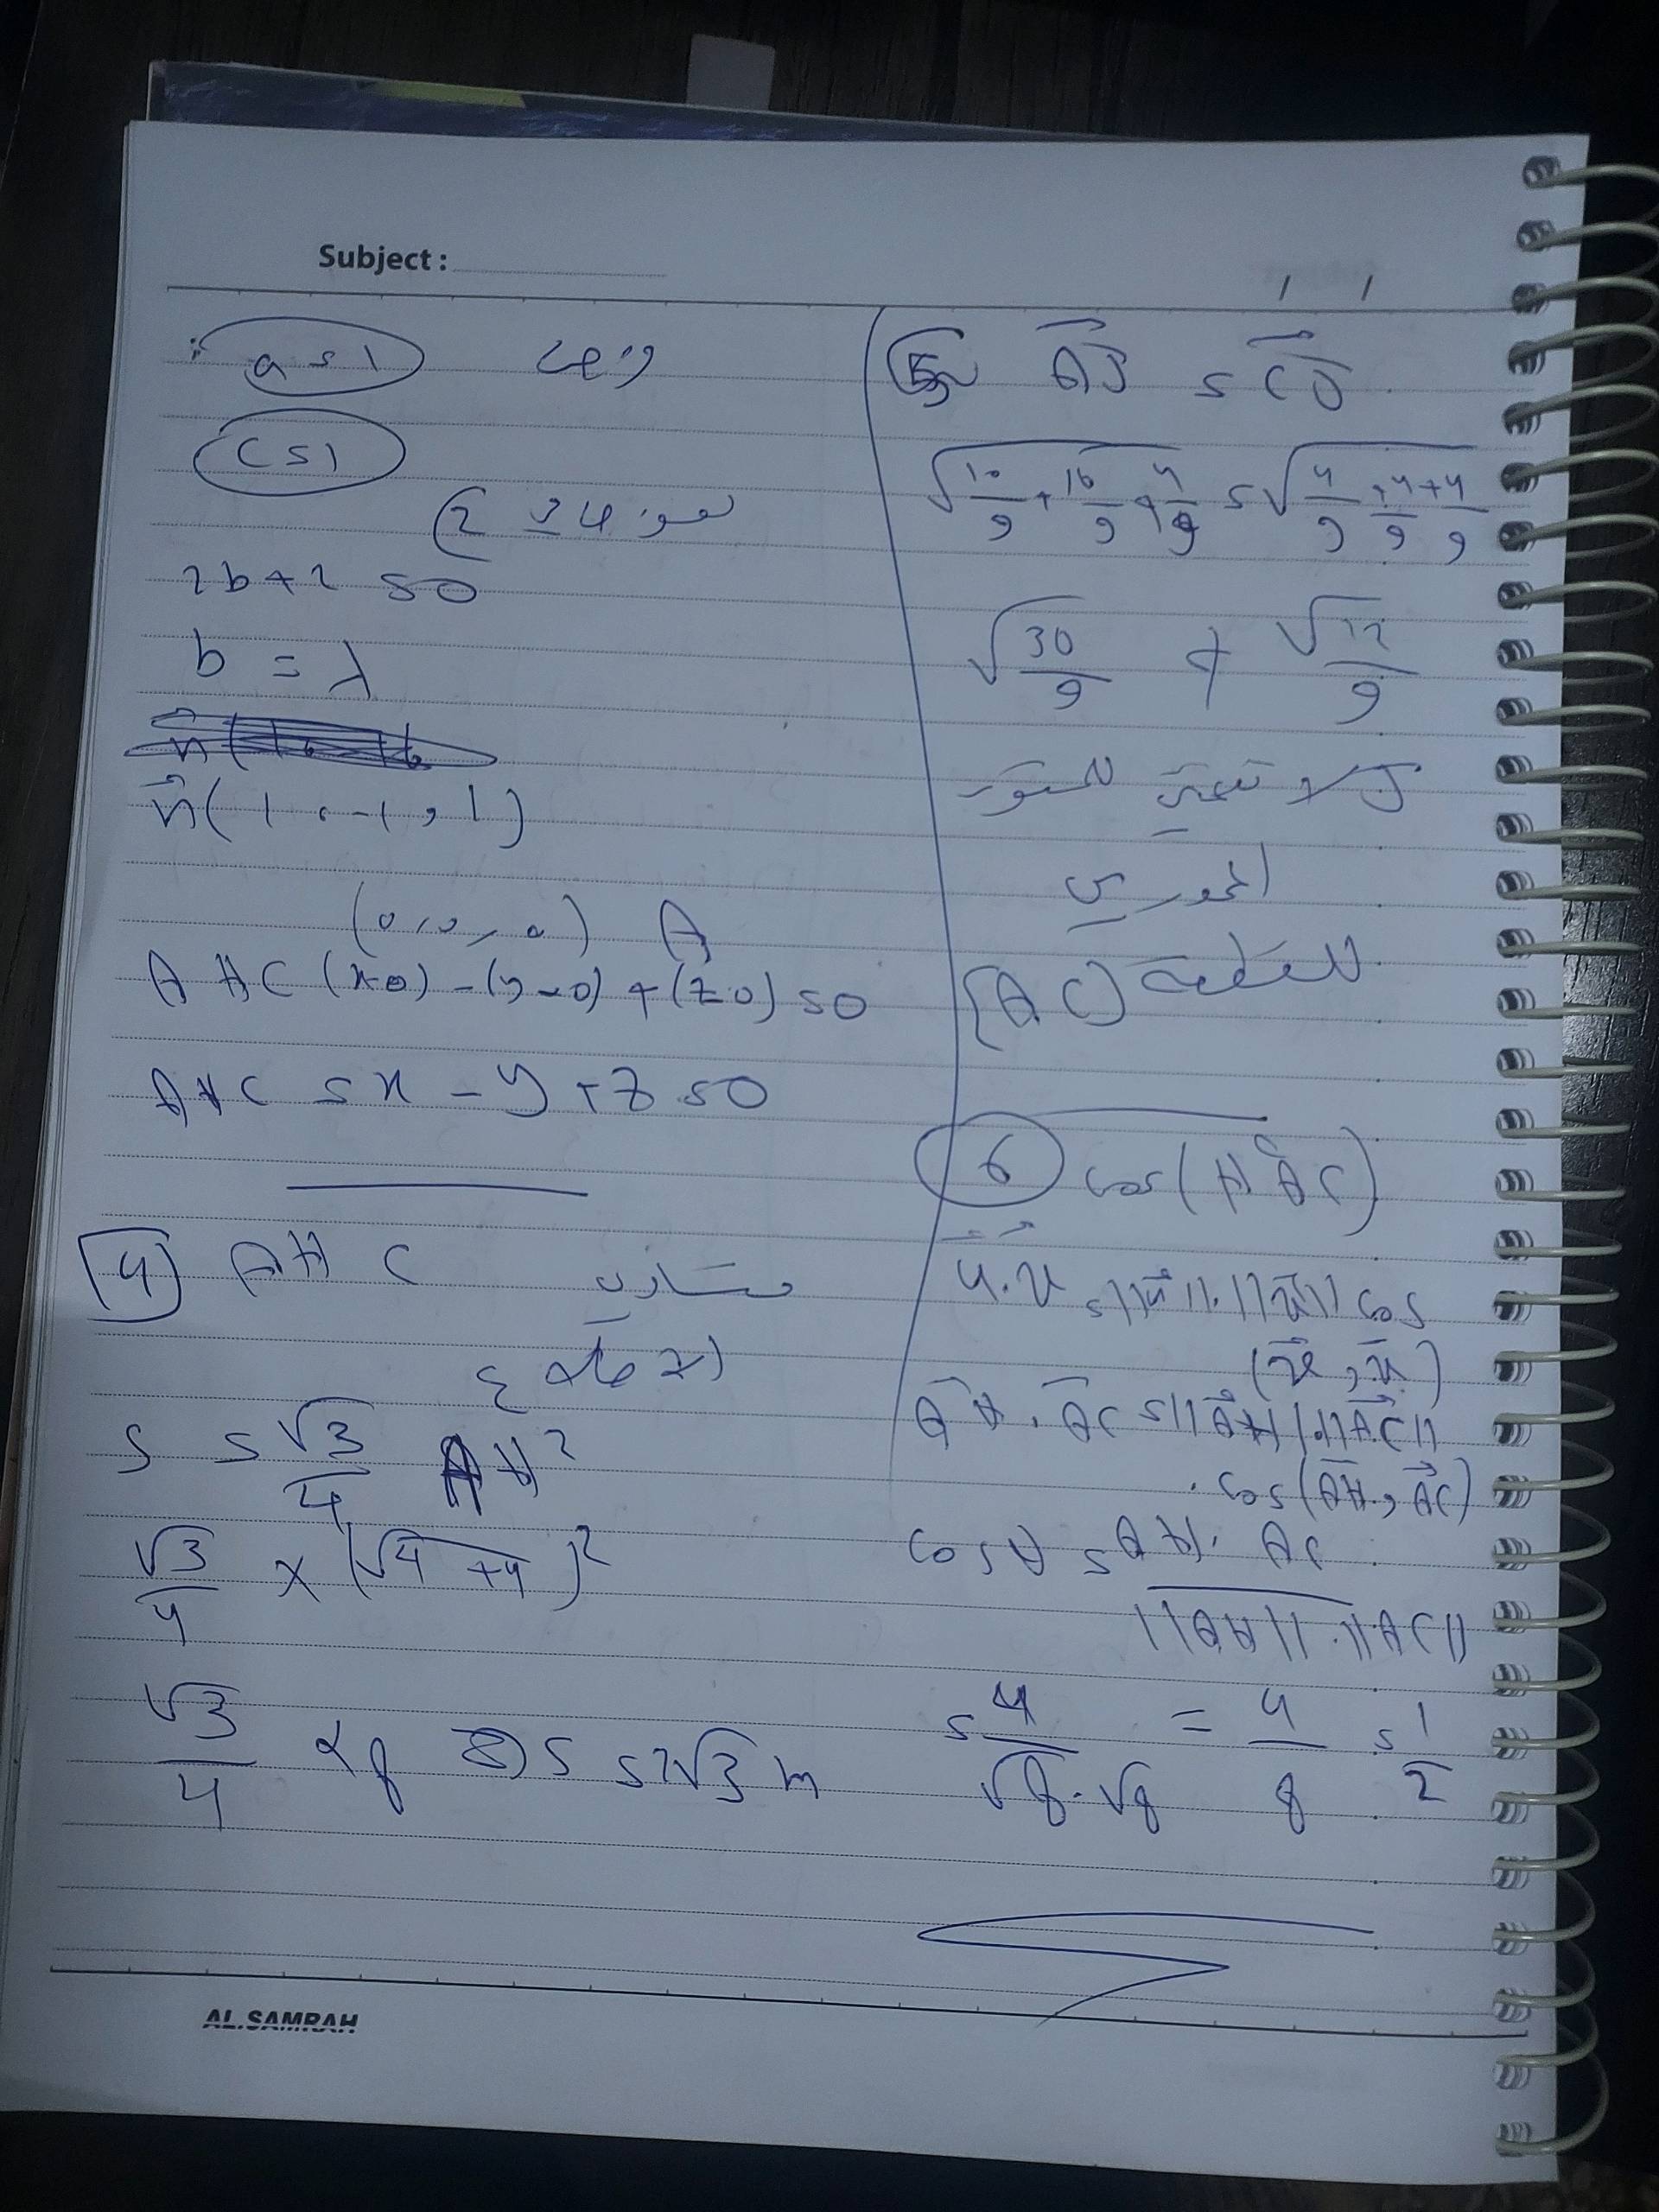 Subject :
a = 1 ومنه
c = 1
نعوض في 2
2b + 2 = 0
b = λ
n(1, -1, 1)
(0, 0, 0) A
AHC (x-0) - (y-0) + (z-0) = 0
AHC = x - y + z = 0
4 AHC متساوي
الأضلاع
S = √3/4 AH²
√3/4 × (√4+4)²
√3/4 × 8 ⇒ S = 2√3 m
5 AJ = CJ
√10/9 + 16/9 + 4/9 = √4/9 + 4/9 + 4/9
√30/9 ≠ √12/9
J لا تنتمي للمستوي
المحوري
للقطعة [AC]
6 cos(HAC)
u.v = ||u||.||v|| cos
(u, v)
AH . AC = ||AH||.||AC||
. cos(AH, AC)
cos θ = AH . AC
||AH||.||AC||
= 4/√8.√8 = 4/8 = 1/2
AL.SAMRAH